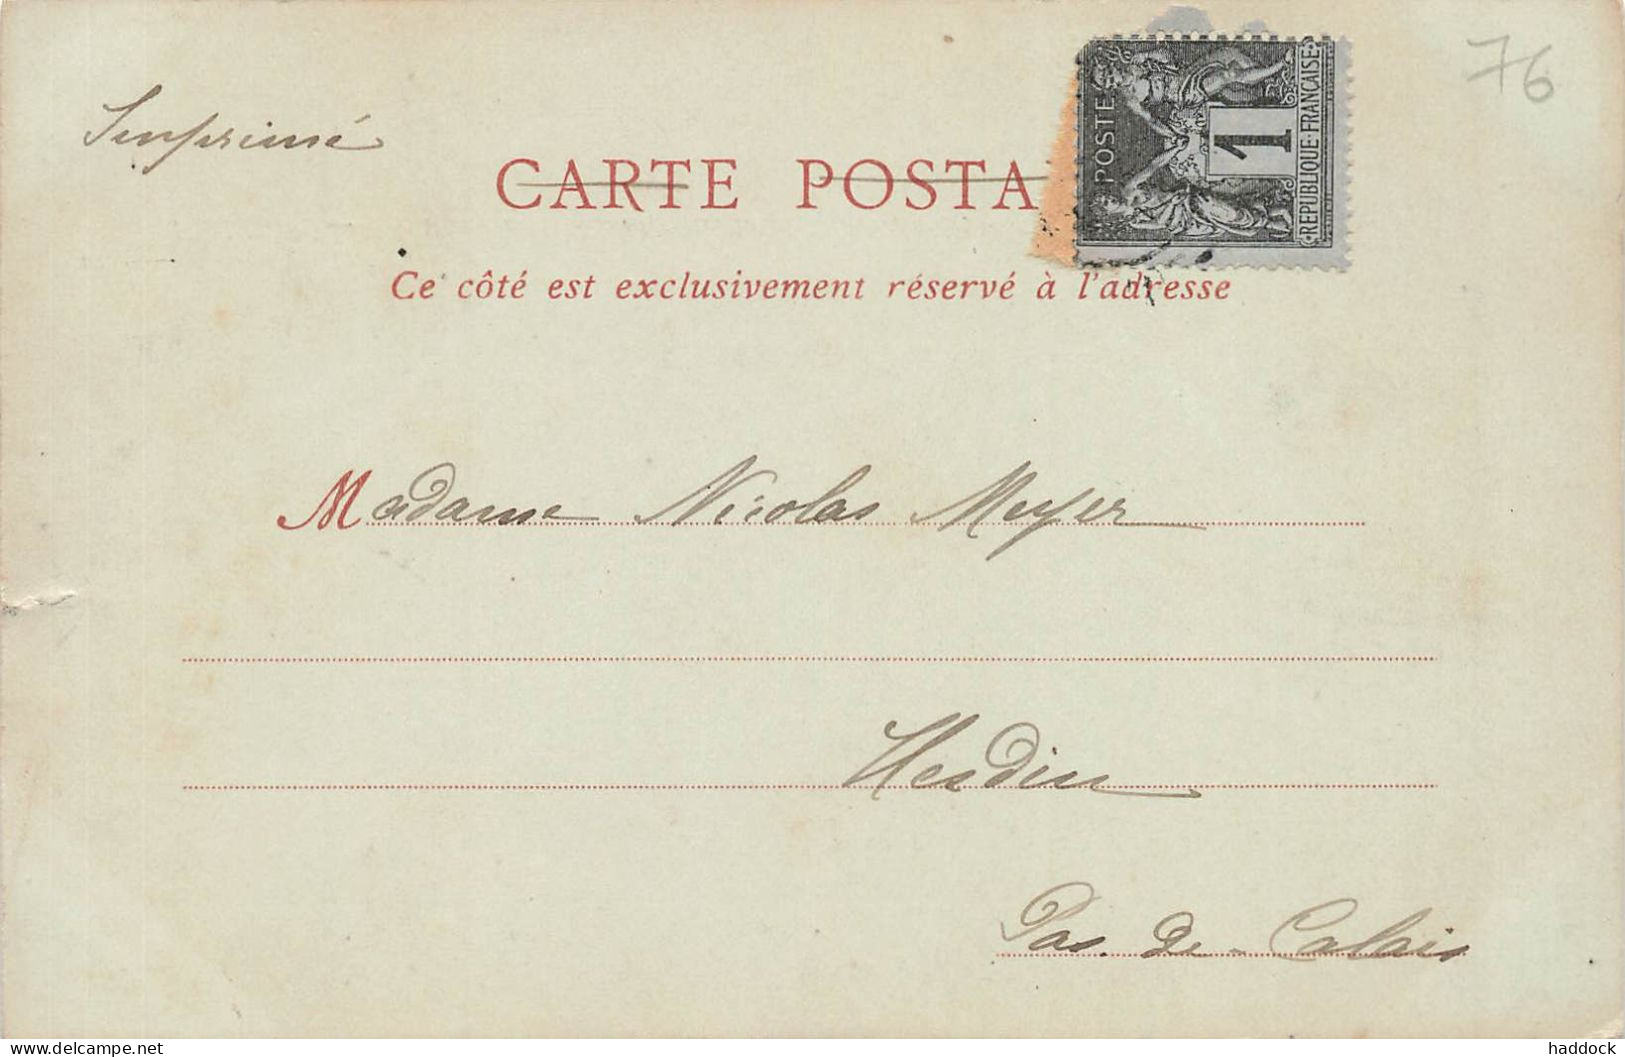 Imprimé
76
POSTE
1
RÉPUBLIQUE FRANÇAISE
CARTE POSTA
Ce côté est exclusivement réservé à l'adresse
Madame Nicolas Meyer
Hesdin
Pas-de-Calais
www.delcampe.net
haddock